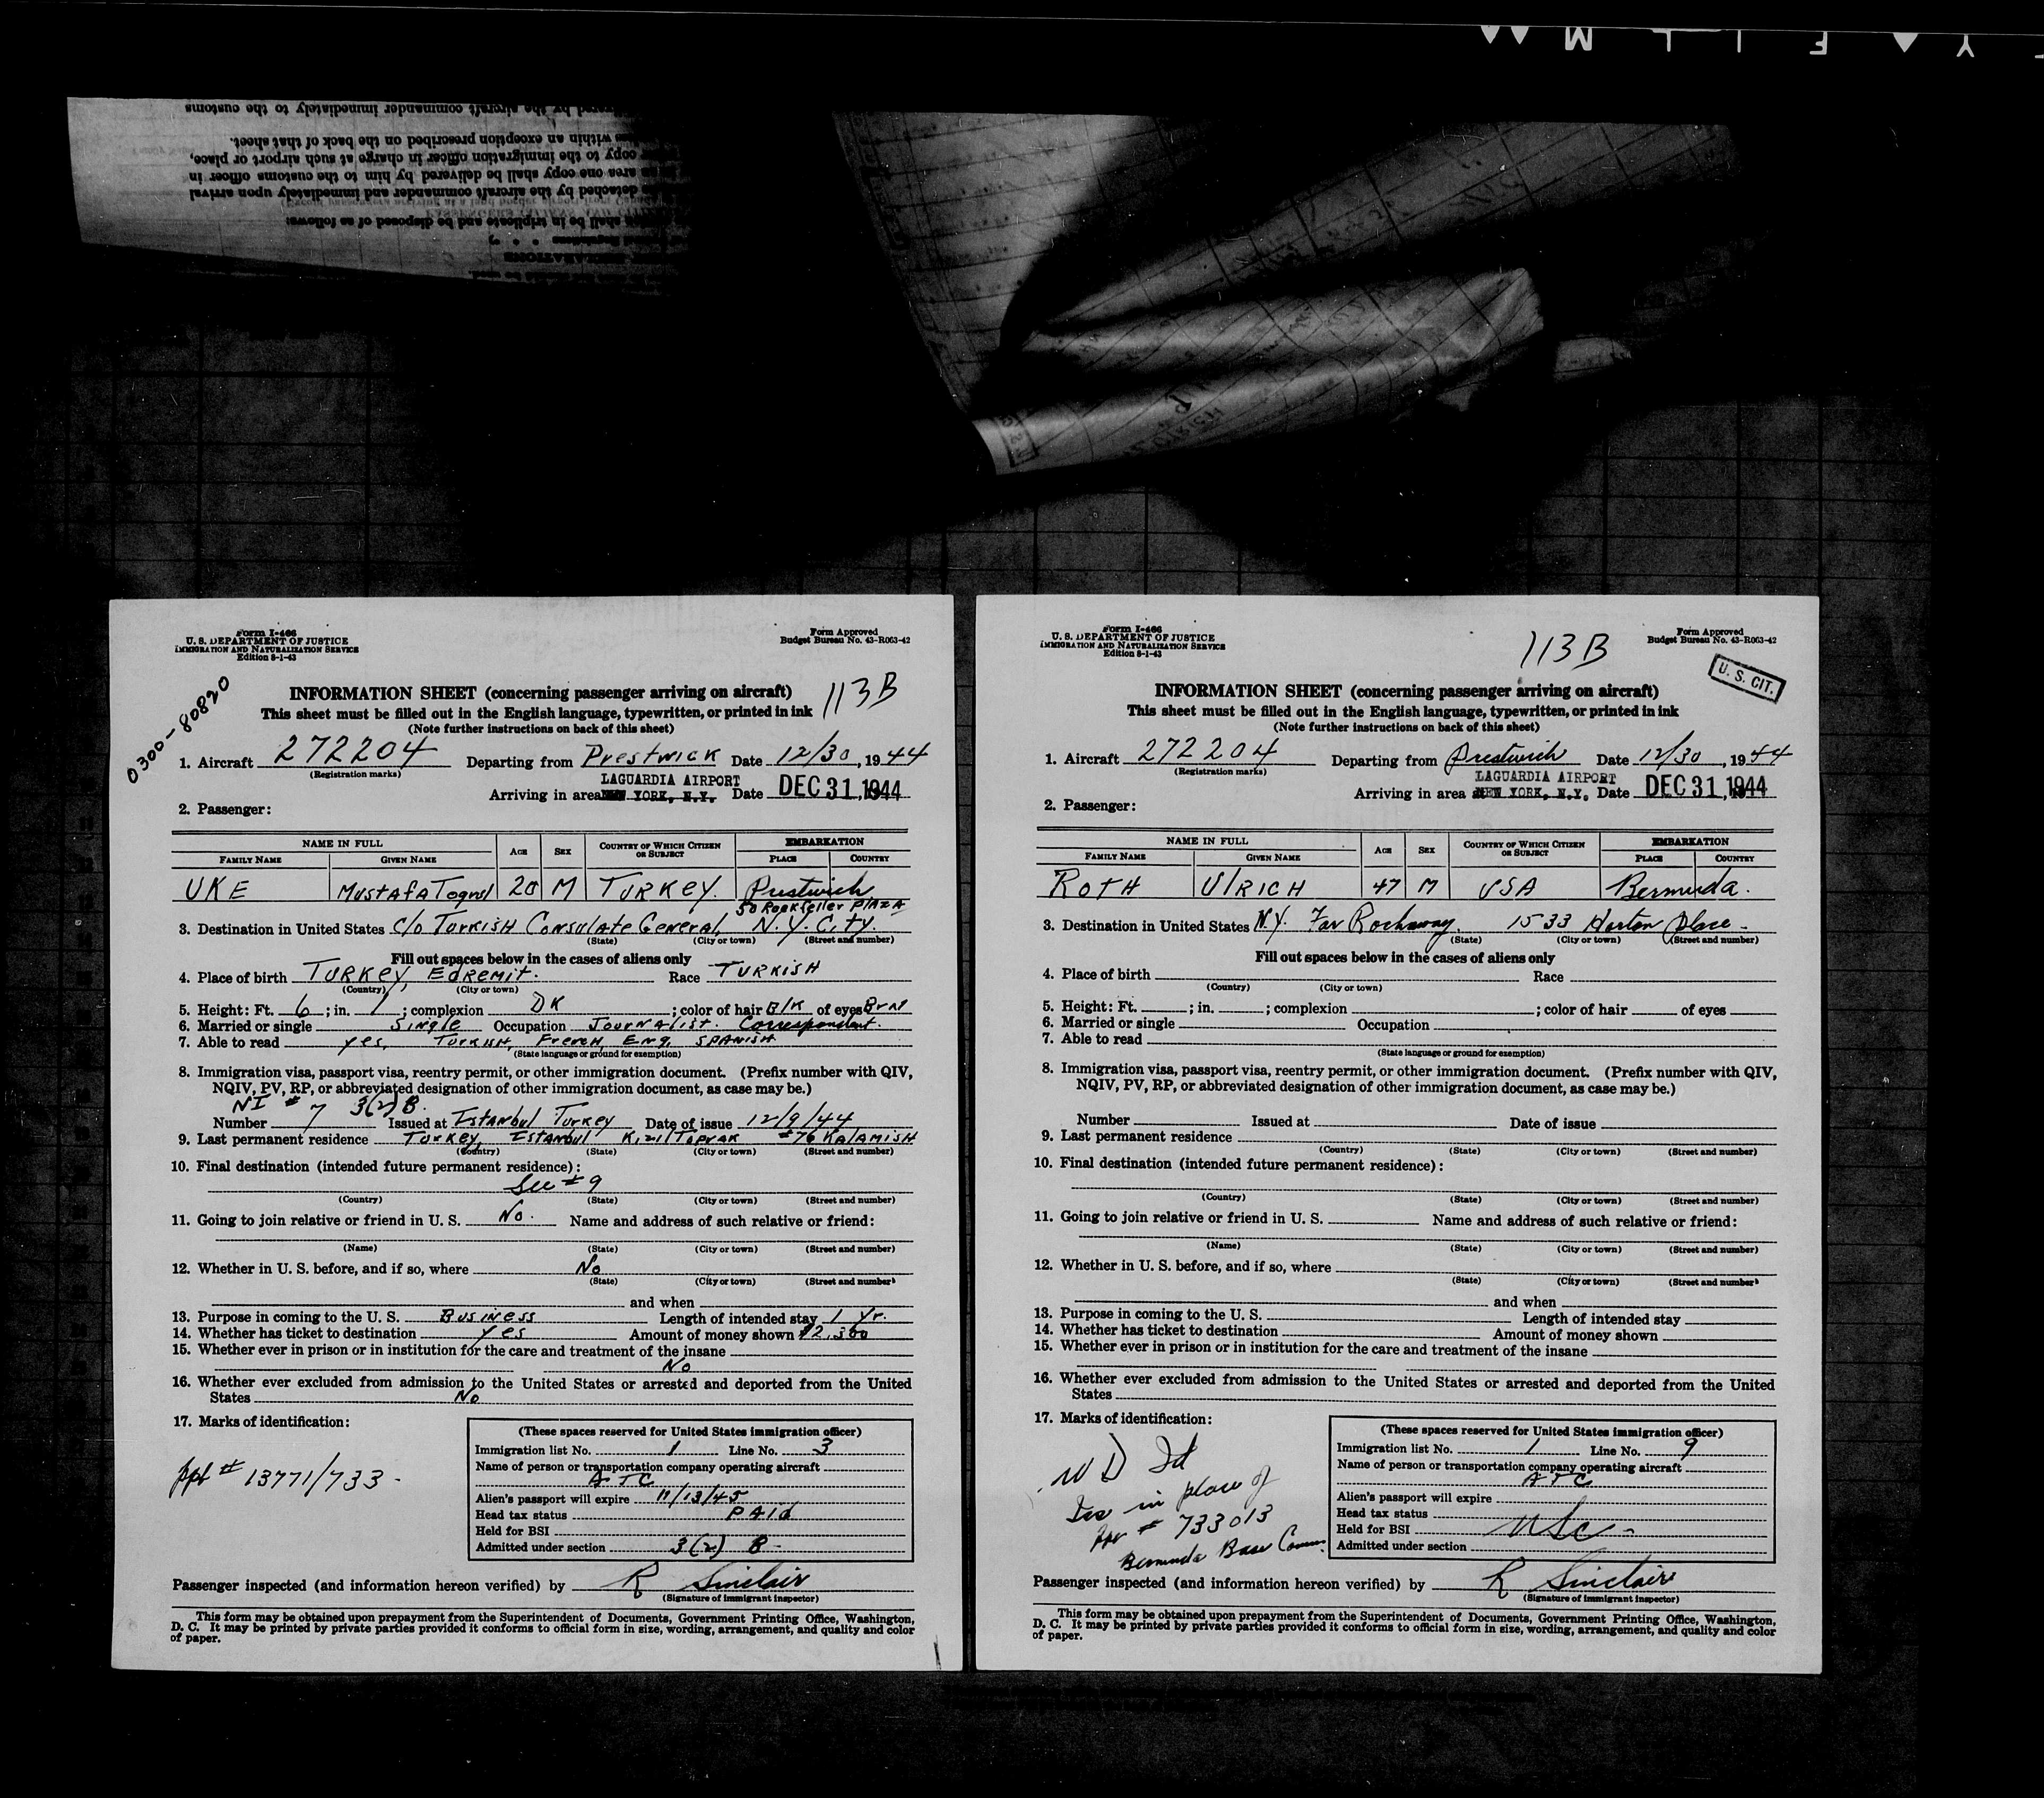 F I L M
by the aircraft commander immediately to the customs
within an exception prescribed on the back of that sheet.
copy to the immigration officer in charge at such airport or place,
area one copy shall be delivered by him to the customs officer in
detached by the aircraft commander and immediately upon arrival
shall be in triplicate and be disposed of as follows:
Form I-466
U. S. DEPARTMENT OF JUSTICE
IMMIGRATION AND NATURALIZATION SERVICE
Edition 8-1-43
Form Approved
Budget Bureau No. 43-R063-42
0300-80820
113B
INFORMATION SHEET (concerning passenger arriving on aircraft)
This sheet must be filled out in the English language, typewritten, or printed in ink
(Note further instructions on back of this sheet)
1. Aircraft 272204 Departing from Prestwick Date 12/30, 1944
(Registration marks)
LAGUARDIA AIRPORT
Arriving in area NEW YORK, N.Y. Date DEC 31, 1944
2. Passenger:
NAME IN FULL AGE SEX COUNTRY OF WHICH CITIZEN OR SUBJECT EMBARKATION
FAMILY NAME GIVEN NAME PLACE COUNTRY
UKE Mustafa Togrul 20 M TURKEY. Prestwick
50 Rockfeller PLAZA
3. Destination in United States c/o Turkish Consulate General, N.Y. City.
(State) (City or town) (Street and number)
Fill out spaces below in the cases of aliens only
4. Place of birth TURKEY, EDREMIT. Race TURKISH
(Country) (City or town)
5. Height: Ft. 6 ; in. 1 ; complexion DK ; color of hair Blk of eyes Brn
6. Married or single Single Occupation Journalist. Correspondent.
7. Able to read yes, Turkish, French, Eng, SPANISH
(State language or ground for exemption)
8. Immigration visa, passport visa, reentry permit, or other immigration document. (Prefix number with QIV,
NQIV, PV, RP, or abbreviated designation of other immigration document, as case may be.)
NI # 7 3(2) B.
Number 7 Issued at Istanbul Turkey Date of issue 12/9/44
9. Last permanent residence Turkey, Istanbul Kiziltoprak #76 Kalamish
(Country) (State) (City or town) (Street and number)
10. Final destination (intended future permanent residence):
See #9
(Country) (State) (City or town) (Street and number)
11. Going to join relative or friend in U. S. No. Name and address of such relative or friend:
(Name) (State) (City or town) (Street and number)
12. Whether in U. S. before, and if so, where No
(State) (City or town) (Street and number)
and when
13. Purpose in coming to the U. S. Business Length of intended stay 1 Yr.
14. Whether has ticket to destination yes Amount of money shown $2,300
15. Whether ever in prison or in institution for the care and treatment of the insane
No
16. Whether ever excluded from admission to the United States or arrested and deported from the United
States No
17. Marks of identification:
ppt # 13771/733 -
(These spaces reserved for United States immigration officer)
Immigration list No. 1 Line No. 3
Name of person or transportation company operating aircraft
ATC
Alien's passport will expire 11/13/45
Head tax status PAID
Held for BSI
Admitted under section 3(2) B -
Passenger inspected (and information hereon verified) by R Sinclair
(Signature of immigrant inspector)
This form may be obtained upon prepayment from the Superintendent of Documents, Government Printing Office, Washington,
D. C. It may be printed by private parties provided it conforms to official form in size, wording, arrangement, and quality and color
of paper.
Form I-466
U. S. DEPARTMENT OF JUSTICE
IMMIGRATION AND NATURALIZATION SERVICE
Edition 8-1-43
Form Approved
Budget Bureau No. 43-R063-42
113B
U. S. CIT.
INFORMATION SHEET (concerning passenger arriving on aircraft)
This sheet must be filled out in the English language, typewritten, or printed in ink
(Note further instructions on back of this sheet)
1. Aircraft 272204 Departing from Prestwick Date 12/30, 1944
(Registration marks)
LAGUARDIA AIRPORT
Arriving in area NEW YORK, N.Y. Date DEC 31, 1944
2. Passenger:
NAME IN FULL AGE SEX COUNTRY OF WHICH CITIZEN OR SUBJECT EMBARKATION
FAMILY NAME GIVEN NAME PLACE COUNTRY
ROTH UlRICH 47 M USA Bermuda.
3. Destination in United States N.Y. Far Rockaway. 1533 Horton Place -
(State) (City or town) (Street and number)
Fill out spaces below in the cases of aliens only
4. Place of birth Race
(Country) (City or town)
5. Height: Ft. ; in. ; complexion ; color of hair of eyes
6. Married or single Occupation
7. Able to read
(State language or ground for exemption)
8. Immigration visa, passport visa, reentry permit, or other immigration document. (Prefix number with QIV,
NQIV, PV, RP, or abbreviated designation of other immigration document, as case may be.)
Number Issued at Date of issue
9. Last permanent residence
(Country) (State) (City or town) (Street and number)
10. Final destination (intended future permanent residence):
(Country) (State) (City or town) (Street and number)
11. Going to join relative or friend in U. S. Name and address of such relative or friend:
(Name) (State) (City or town) (Street and number)
12. Whether in U. S. before, and if so, where
(State) (City or town) (Street and number)
and when
13. Purpose in coming to the U. S. Length of intended stay
14. Whether has ticket to destination Amount of money shown
15. Whether ever in prison or in institution for the care and treatment of the insane
16. Whether ever excluded from admission to the United States or arrested and deported from the United
States
17. Marks of identification:
WD Id
Iss in place of
ppt # 733013
Bermuda Base Comm.
(These spaces reserved for United States immigration officer)
Immigration list No. 1 Line No. 9
Name of person or transportation company operating aircraft
ATC
Alien's passport will expire
Head tax status
Held for BSI USC -
Admitted under section
Passenger inspected (and information hereon verified) by R Sinclair
(Signature of immigrant inspector)
This form may be obtained upon prepayment from the Superintendent of Documents, Government Printing Office, Washington,
D. C. It may be printed by private parties provided it conforms to official form in size, wording, arrangement, and quality and color
of paper.